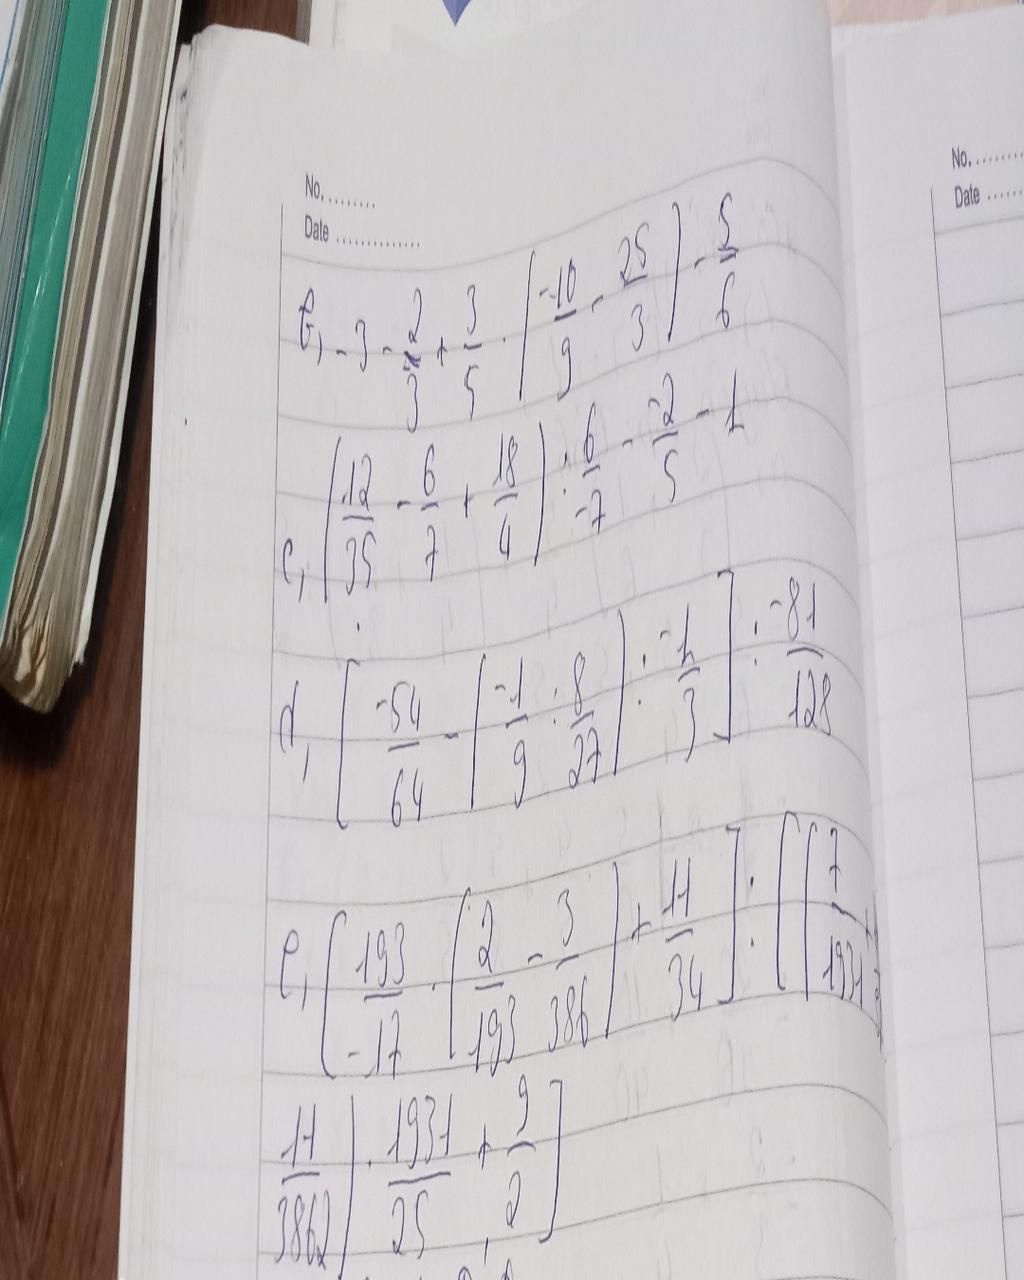 No. ..........
Date ..............
b, -3 - 2/3 + 3/5 . ( -10/9 - 25/3 ) - 5/6
c, ( 12/35 - 6/7 + 18/4 ) : 6/-7 - -2/5 - 1
d, [ -54/64 - ( -1/9 : 8/27 ) : -1/3 ] : -81/128
e, [ 193/-17 . ( 2/193 - 3/386 ) + 11/34 ] : [ ( 7/1931 +
11/3862 ) . 1931/25 + 9/2 ]
No. ........
Date ......